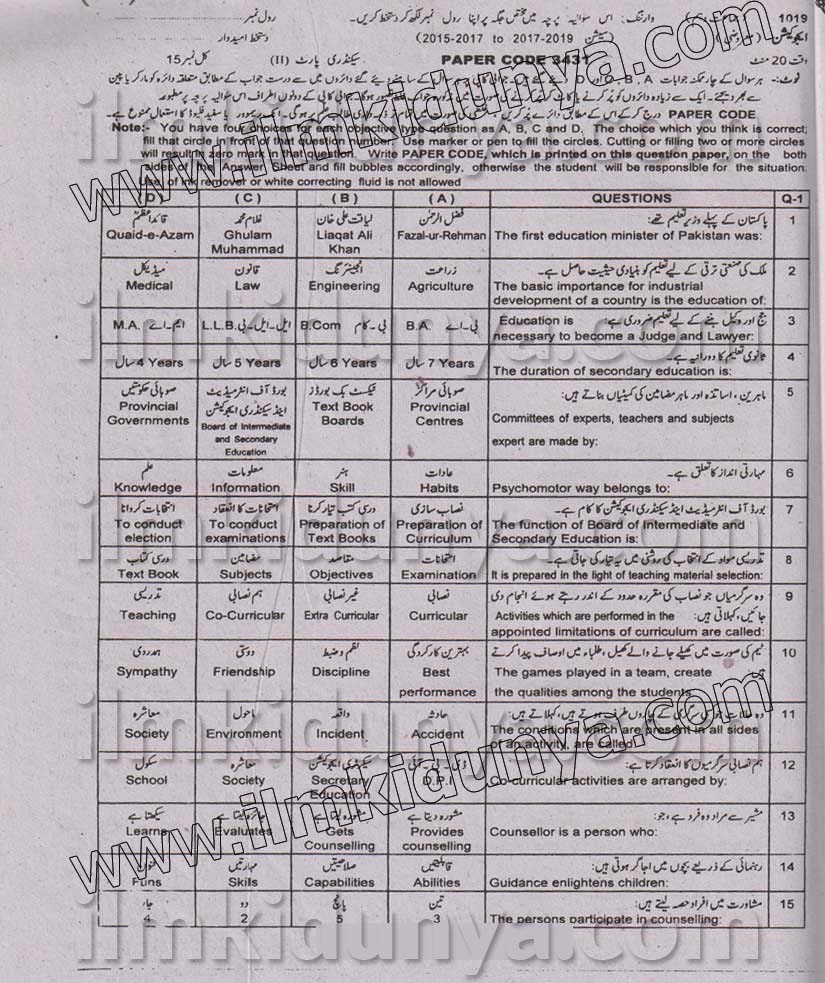 1019
وارننگ: اس سوالیہ پرچہ میں مختص جگہ پر اپنا رول نمبر لکھ کر دستخط کریں۔
رول نمبر
ایجوکیشن
(2015-2017 to 2017-2019) سیشن
دستخط امیدوار
وقت 20 منٹ
PAPER CODE 3431
سیکنڈری پارٹ (II)
کل نمبر 15
PAPER CODE
Note:- You have four choices for each objective type question as A, B, C and D. The choice which you think is correct;
fill that circle in front of that question number. Use marker or pen to fill the circles. Cutting or filling two or more circles
will result in zero mark in that question. Write PAPER CODE, which is printed on this question paper, on the both
sides of the Answer Sheet and fill bubbles accordingly, otherwise the student will be responsible for the situation.
Use of ink remover or white correcting fluid is not allowed
(D) (C) (B) (A) QUESTIONS Q-1
قائد اعظم غلام محمد لیاقت علی خان فضل الرحمن پاکستان کے پہلے وزیر تعلیم تھے: 1
Quaid-e-Azam Ghulam Muhammad Liaqat Ali Khan Fazal-ur-Rehman The first education minister of Pakistan was:
میڈیکل قانون انجینئرنگ زراعت ملک کی صنعتی ترقی کے لیے تعلیم کو بنیادی حیثیت حاصل ہے۔ 2
Medical Law Engineering Agriculture The basic importance for industrial
development of a country is the education of:
M.A. ایم۔اے L.L.B. ایل۔ایل۔بی B.Com بی۔کام B.A. بی۔اے Education is جج اور وکیل بننے کے لیے تعلیم ضروری ہے: 3
necessary to become a Judge and Lawyer:
4 Years سال 5 Years سال 6 Years سال 7 Years سال ثانوی تعلیم کا دورانیہ ہے۔ 4
The duration of secondary education is:
صوبائی حکومتیں بورڈ آف انٹرمیڈیٹ اینڈ سیکنڈری ایجوکیشن ٹیکسٹ بک بورڈز صوبائی مراکز ماہرین، اساتذہ اور ماہر مضامین کی کمیٹیاں بناتے ہیں: 5
Provincial Governments Board of Intermediate and Secondary Education Text Book Boards Provincial Centres Committees of experts, teachers and subjects
expert are made by:
علم معلومات ہنر عادات مہارتی انداز کا تعلق ہے۔ 6
Knowledge Information Skill Habits Psychomotor way belongs to:
انتخابات کروانا امتحانات کا انعقاد درسی کتب تیار کرنا نصاب سازی بورڈ آف انٹرمیڈیٹ اینڈ سیکنڈری ایجوکیشن کا کام ہے۔ 7
To conduct election To conduct examinations Preparation of Text Books Preparation of Curriculum The function of Board of Intermediate and
Secondary Education is:
درسی کتاب مضامین مقاصد امتحانات تدریسی مواد کے انتخاب کی روشنی میں یہ تیار کی جاتی ہے۔ 8
Text Book Subjects Objectives Examination It is prepared in the light of teaching material selection:
تدریسی ہم نصابی غیر نصابی نصابی وہ سرگرمیاں جو نصاب کی مقررہ حدود کے اندر رہتے ہوئے انجام دی 9
Teaching Co-Curricular Extra Curricular Curricular Activities which are performed in the جائیں، کہلاتی ہیں:
appointed limitations of curriculum are called:
ہمدردی دوستی نظم و ضبط بہترین کارکردگی ٹیم کی صورت میں کھیلے جانے والے کھیل، طلباء میں اوصاف پیدا کرتے ہیں: 10
Sympathy Friendship Discipline Best performance The games played in a team, create
the qualities among the students:
معاشرہ ماحول واقعہ حادثہ وہ حالات جو کسی سرگرمی کے چاروں طرف ہوتے ہیں، کہلاتے ہیں: 11
Society Environment Incident Accident The conditions which are present in all sides
of an activity, are called:
سکول معاشرہ سیکنڈری ایجوکیشن ڈی۔پی۔آئی ہم نصابی سرگرمیوں کا انعقاد کرتا ہے: 12
School Society Secretary Education D.P.I Co-curricular activities are arranged by:
سیکھتا ہے جائزہ لیتا ہے مشورہ لیتا ہے مشورہ دیتا ہے مشیر سے مراد وہ فرد ہے، جو: 13
Learns Evaluates Gets Counselling Provides counselling Counsellor is a person who:
فنون مہارتیں صلاحیتیں قابلیتیں رہنمائی کے ذریعے بچوں میں اجاگر ہوتی ہیں: 14
Funs Skills Capabilities Abilities Guidance enlightens children:
چار دو پانچ تین مشاورت میں افراد حصہ لیتے ہیں: 15
4 2 5 3 The persons participate in counselling:
www.ilmkidunya.com
www.ilmkidunya.com
ilmkidunya.com
ilmkidunya.com
ilmkidunya.com
ilmkidunya.com
ilmkidunya.com
ilmkidunya.com